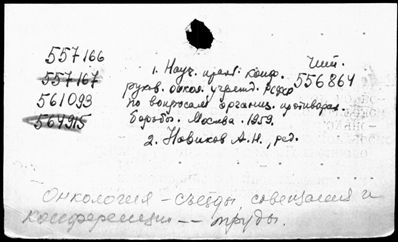 557166
557167
561093
564915
Чит.
556864
1. Науч. практ. конф.
руков. онкол. учрежд. РСФСР
по вопросам организ. противорак.
борьбы. Москва. 1959.
2. Новиков А.Н., ред.
Онкология – съезды, совещания и
конференции -- труды.